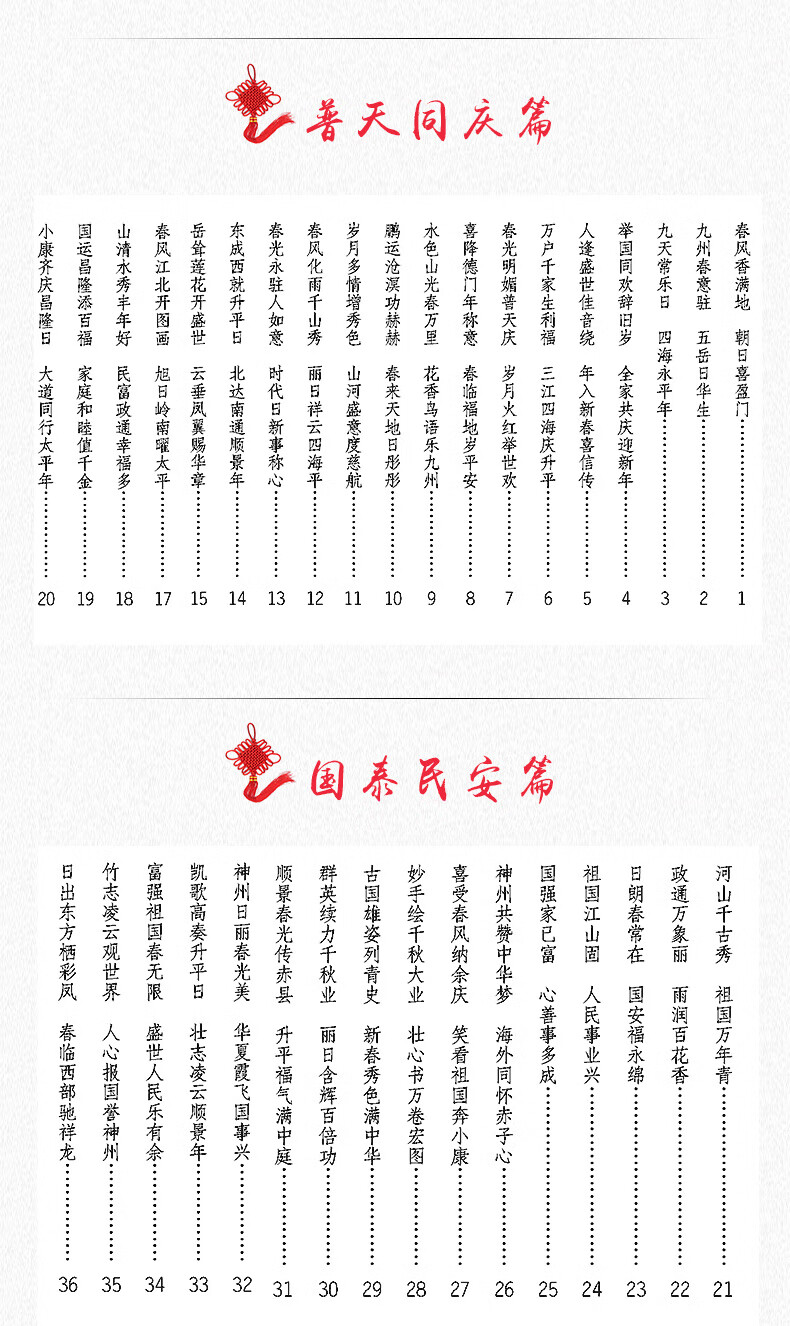 普天同庆篇
春风香满地 朝日喜盈门 1
九州春意驻 五岳日华生 2
九天常乐日 四海永平年 3
举国同欢辞旧岁 全家共庆迎新年 4
人逢盛世佳音绕 年入新春喜信传 5
万户千家生利福 三江四海庆升平 6
春光明媚普天庆 岁月火红举世欢 7
喜降德门年称意 春临福地岁平安 8
水色山光春万里 花香鸟语乐九州 9
鹏运沧溟功赫赫 春来天地日彤彤 10
岁月多情增秀色 山河盛意度慈航 11
春风化雨千山秀 丽日祥云四海平 12
春光永驻人如意 时代日新事称心 13
东成西就升平日 北达南通顺景年 14
岳耸莲花开盛世 云垂凤翼赐华章 15
春风江北开图画 旭日岭南曜太平 17
山清水秀丰年好 民富政通幸福多 18
国运昌隆添百福 家庭和睦值千金 19
小康齐庆昌隆日 大道同行太平年 20
国泰民安篇
河山千古秀 祖国万年青 21
政通万象丽 雨润百花香 22
日朗春常在 国安福永绵 23
祖国江山固 人民事业兴 24
国强家已富 心善事多成 25
神州共赞中华梦 海外同怀赤子心 26
喜受春风纳余庆 笑看祖国奔小康 27
妙手绘千秋大业 壮心书万卷宏图 28
古国雄姿列青史 新春秀色满中华 29
群英续力千秋业 丽日含辉百倍功 30
顺景春光传赤县 升平福气满中庭 31
神州日丽春光美 华夏霞飞国事兴 32
凯歌高奏升平日 壮志凌云顺景年 33
富强祖国春无限 盛世人民乐有余 34
竹志凌云观世界 人心报国誉神州 35
日出东方栖彩凤 春临西部驰祥龙 36